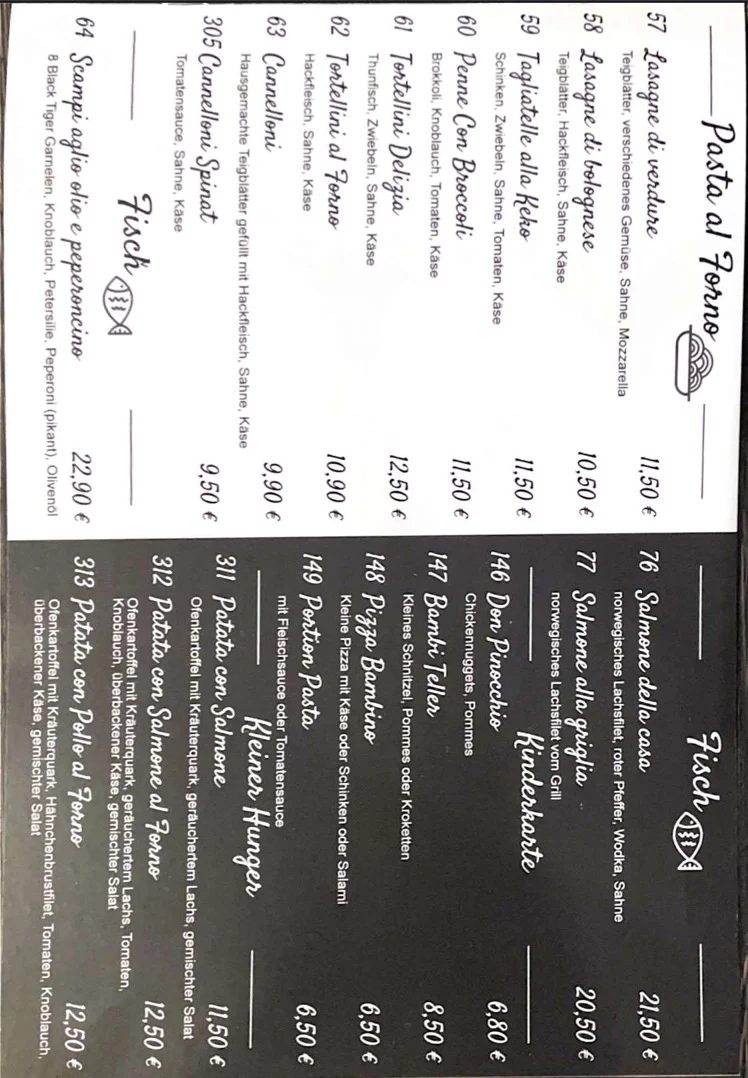 Pasta al Forno
57 Lasagne di verdure 11,50 €
Teigblätter, verschiedenes Gemüse, Sahne, Mozzarella
58 Lasagne di bolognese 10,50 €
Teigblätter, Hackfleisch, Sahne, Käse
59 Tagliatelle alla Keko 11,50 €
Schinken, Zwiebeln, Sahne, Tomaten, Käse
60 Penne Con Broccoli 11,50 €
Brokkoli, Knoblauch, Tomaten, Käse
61 Tortellini Delizia 12,50 €
Thunfisch, Zwiebeln, Sahne, Käse
62 Tortellini al Forno 10,90 €
Hackfleisch, Sahne, Käse
63 Cannelloni 9,90 €
Hausgemachte Teigblätter gefüllt mit Hackfleisch, Sahne, Käse
305 Cannelloni Spinat 9,50 €
Tomatensauce, Sahne, Käse
Fisch
64 Scampi aglio olio e peperoncino 22,90 €
8 Black Tiger Garnelen, Knoblauch, Petersilie, Peperoni (pikant), Olivenöl
Fisch
76 Salmone della casa 21,50 €
norwegisches Lachsfilet, roter Pfeffer, Wodka, Sahne
77 Salmone alla griglia 20,50 €
norwegisches Lachsfilet vom Grill
Kinderkarte
146 Don Pinocchio 6,80 €
Chickennuggets, Pommes
147 Bambi Teller 8,50 €
Kleines Schnitzel, Pommes oder Kroketten
148 Pizza Bambino 6,50 €
Kleine Pizza mit Käse oder Schinken oder Salami
149 Portion Pasta 6,50 €
mit Fleischsauce oder Tomatensauce
Kleiner Hunger
311 Patata con Salmone 11,50 €
Ofenkartoffel mit Kräuterquark, geräuchertem Lachs, gemischter Salat
312 Patata con Salmone al Forno 12,50 €
Ofenkartoffel mit Kräuterquark, geräuchertem Lachs, Tomaten,
Knoblauch, überbackener Käse, gemischter Salat
313 Patata con Pollo al Forno 12,50 €
Ofenkartoffel mit Kräuterquark, Hähnchenbrustfilet, Tomaten, Knoblauch,
überbackener Käse, gemischter Salat